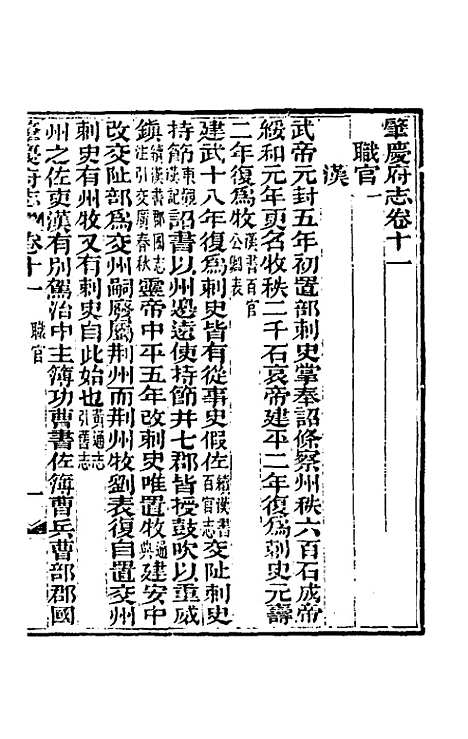 肇慶府志卷十一
職官一
漢
武帝元封五年初置部刺史掌奉詔條察州秩六百石成帝
綏和元年更名牧秩二千石哀帝建平二年復為刺史元壽
二年復為牧漢書百官公卿表
建武十八年復為刺史皆有從事史假佐續漢書百官志交阯刺史
持節東觀漢記詔書以州邊遠使持節并七郡皆授鼓吹以重威
鎮續漢書郡國志注引交廣春秋靈帝中平五年改刺史唯置牧通典建安中
改交阯部為交州嗣廢屬荆州而荆州牧劉表復自置交州
刺史有州牧又有刺史自此始也黃通志引舊志
州之佐吏漢有別駕治中主簿功曹書佐簿曹兵曹部郡國
肇慶府志
卷十一
職官
一